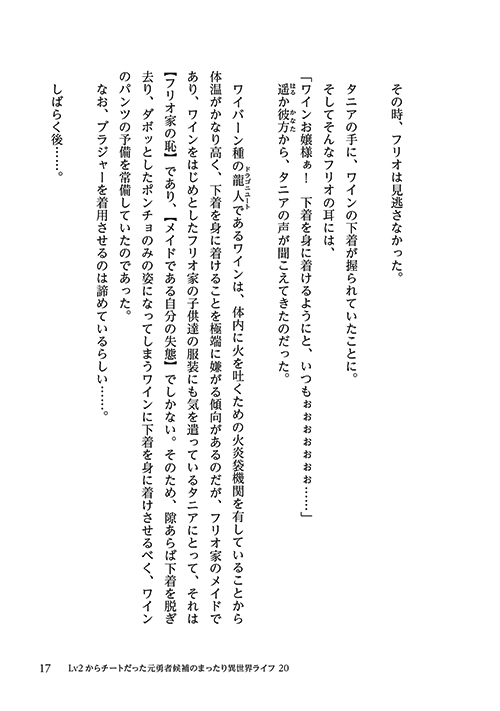 その時、フリオは見逃さなかった。
タニアの手に、ワインの下着が握られていたことに。
そしてそんなフリオの耳には、
「ワインお嬢様ぁ！　下着を身に着けるようにと、いつもぉぉぉぉぉぉぉ……」
遥か彼方から、タニアの声が聞こえてきたのだった。
はる かなた
ワイバーン種の龍人であるワインは、体内に火を吐くための火炎袋機関を有していることから
ドラゴニュート
体温がかなり高く、下着を身に着けることを極端に嫌がる傾向があるのだが、フリオ家のメイドで
あり、ワインをはじめとしたフリオ家の子供達の服装にも気を遣っているタニアにとって、それは
【フリオ家の恥】であり、【メイドである自分の失態】でしかない。そのため、隙あらば下着を脱ぎ
去り、ダボッとしたポンチョのみの姿になってしまうワインに下着を身に着けさせるべく、ワイン
のパンツの予備を常備していたのであった。
なお、ブラジャーを着用させるのは諦めているらしい……。
しばらく後……。
17　Lv2からチートだった元勇者候補のまったり異世界ライフ 20